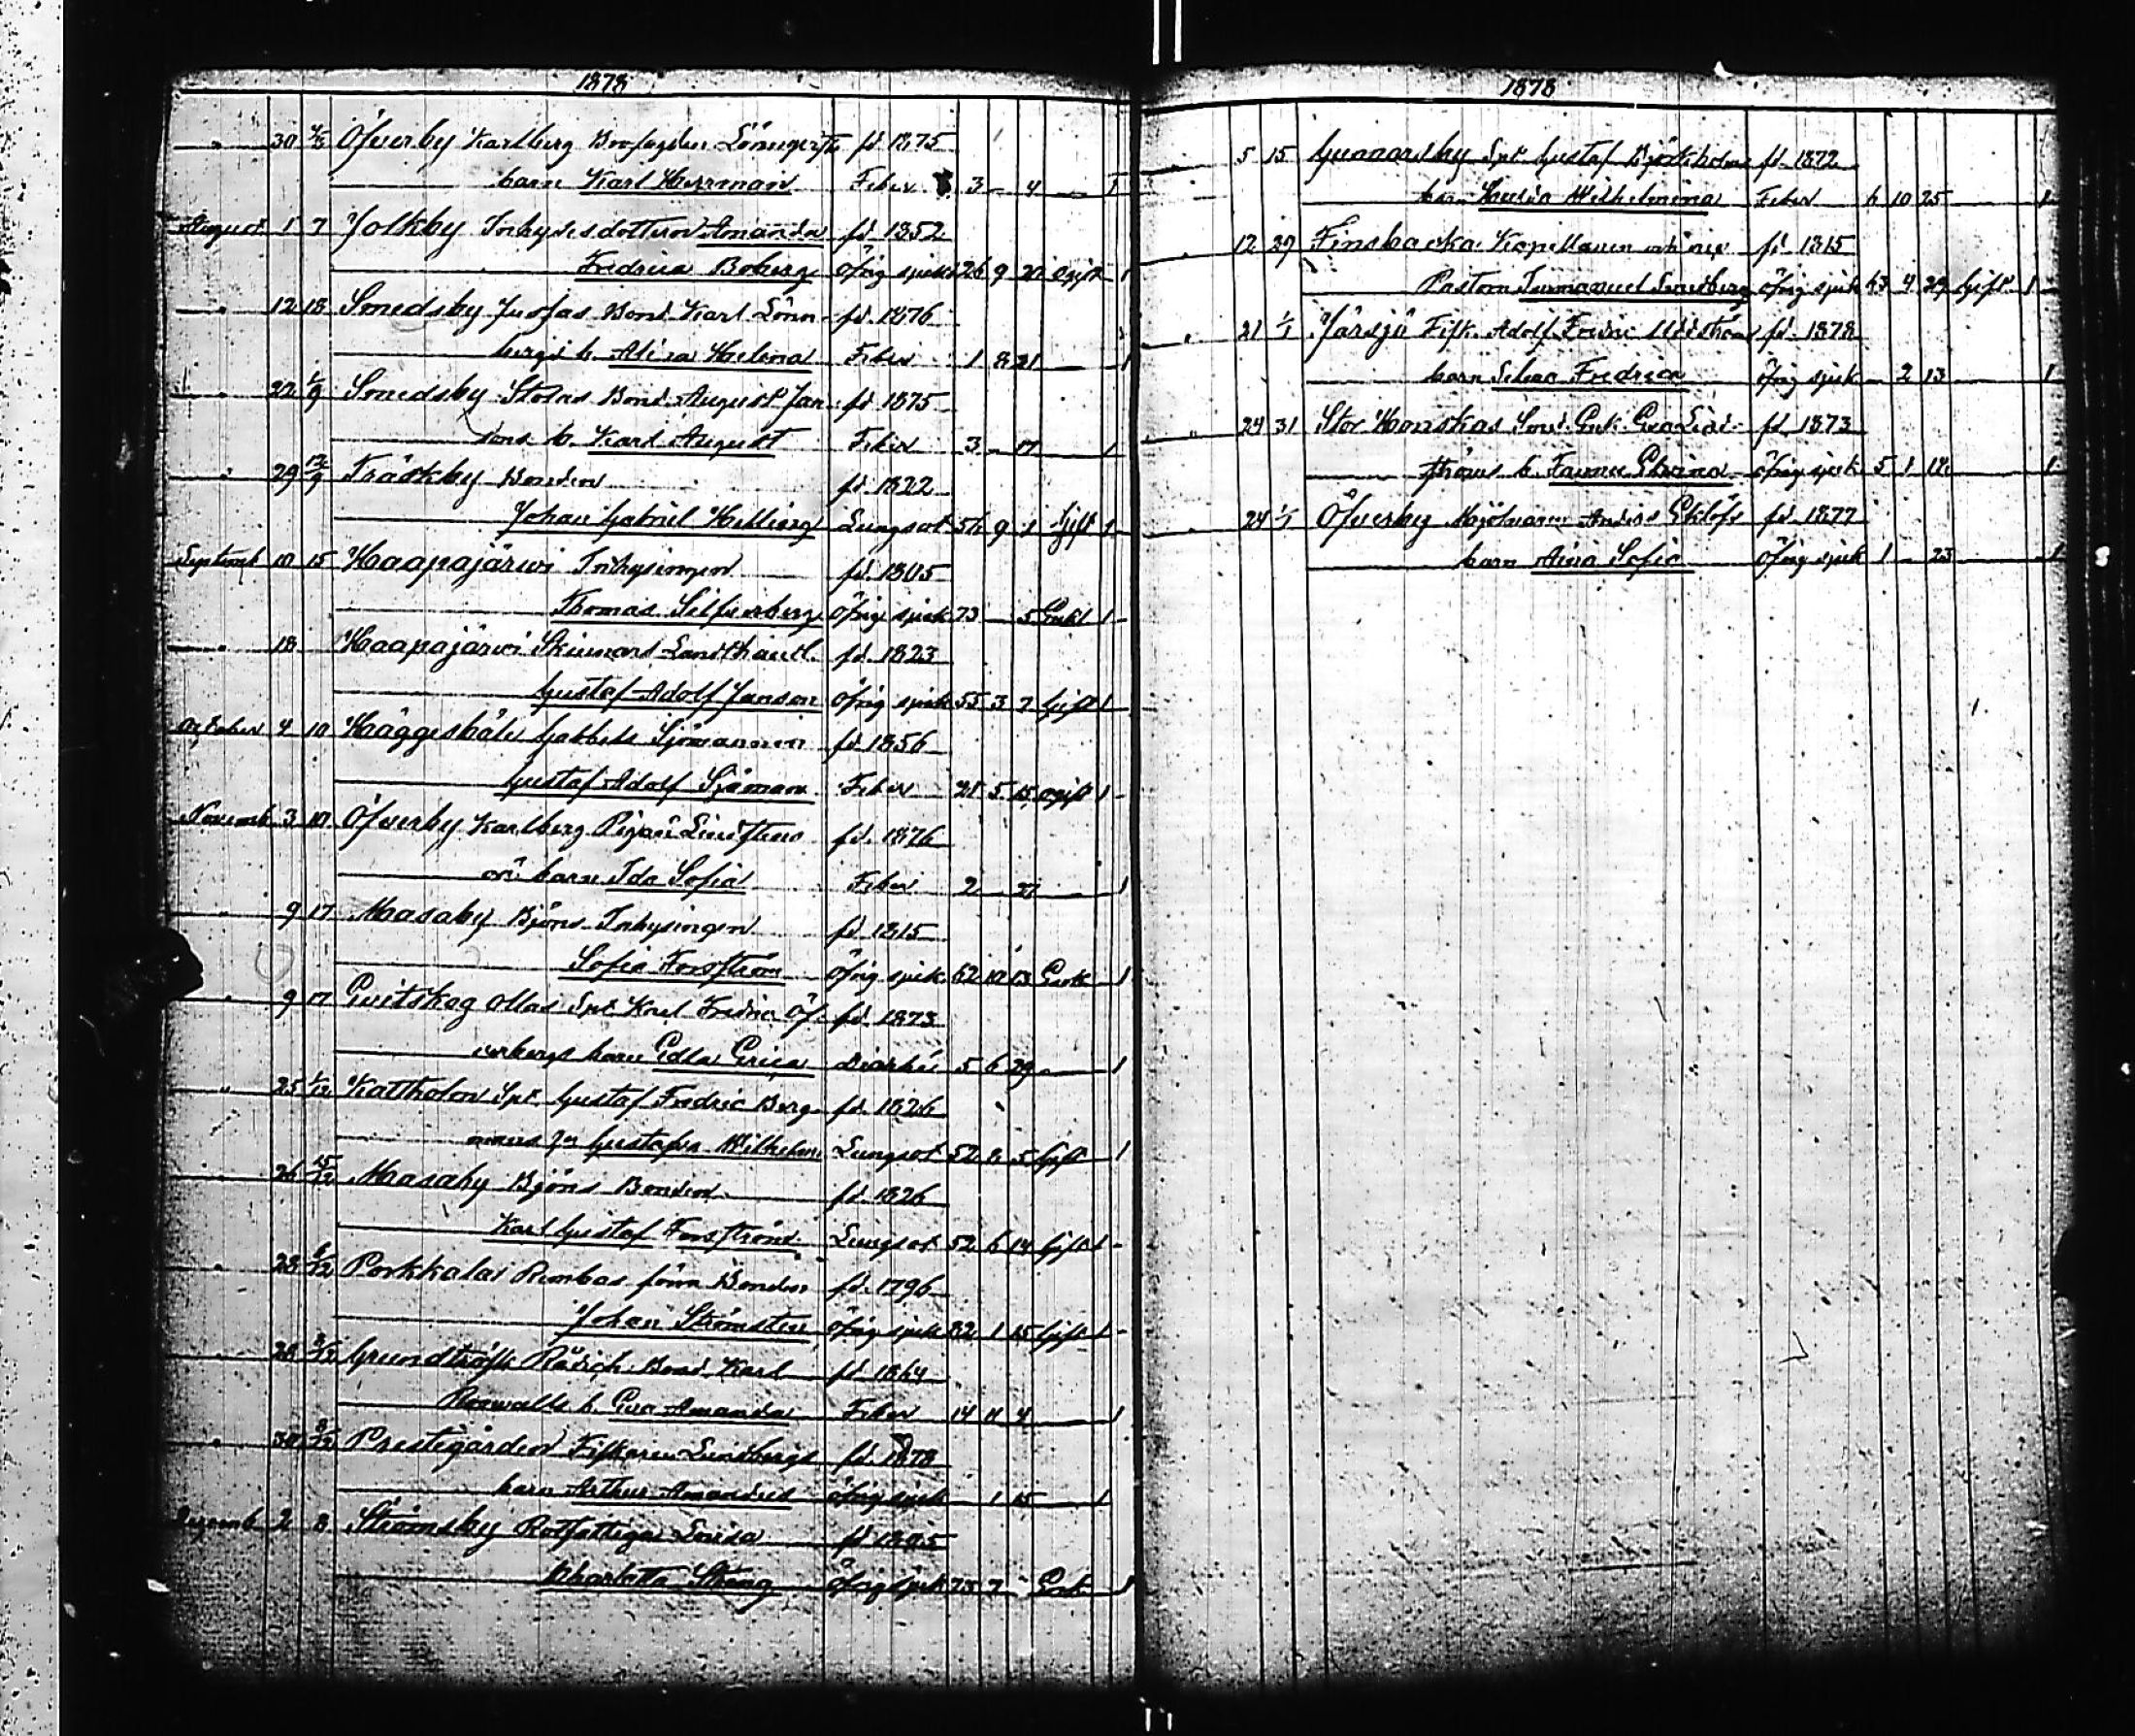 1878
" 30 Öfverby Karlberg fd. 1875
barn Karl Herrman Feber 3 – 4 – 1
August 1 7 Jolkby Inhysesdottren Amanda fd. 1852
Fredrica Boberg Öfrig sjuk 26 9 Ogift 1
" 12 18 Smedsby Jusfas Bond. Karl Lönn- fd. 1876
bergs b. Alina Helena Feber 1 8 21 1
" 22 1/9 Smedsby Stolas Bond. August Jan- fd. 1875
sons b. Karl August Feber 3 – 17 1
" 29 12/9 Träskby Bonden fd. 1822
Johan Gabriel Helling Lungsot 56 9 1 Gift 1
Septemb 10 15 Haapajärwi Inhysingen fd. 1805
Thomas Silfverberg Öfrig sjuk 73 – 5 Enkl 1
" 18 Haapajärwi Skinnars Landthandl. fd. 1823
Gustaf Adolf Janson Öfrig sjuk 55 3 7 Gift 1
October 4 10 Häggesböle Gabbels Sjömannen fd. 1856
Gustaf Adolf Sjöman Feber 21 5 15 ogift 1
Novemb 3 10 Öfverby Karlberg Pigan fd. 1876
barn Ida Sofia Feber 2 – 27 1
" 9 17 Masaby Björns Inhysingen fd. 1815
Sofia Forsström Öfrig sjuk 62 10 13 Enk 1
" 9 17 Evitskog Ollas Spt. Karl Fredric Öf- fd. 1873
verbergs barn Edla Erica Diarhé 5 6 29 1
" 25 1/12 Kattholm Spt. Gustaf Fredric Berg- fd. 1826
mans Gustafva Wilhelm. Lungsot 52 8 5 Gift 1
" 26 15/12 Masaby Björns Bonden fd. 1826
Karl Gustaf Forsström Lungsot 52 6 14 Gift 1
" 28 8/12 Porkkala Rembas förra Bonden fd. 1796
Johan Strömsten Öfrig sjuk 82 1 15 Gift 1
28 Grundträsk Bond. Karl fd. 1864
b. Eva Amanda Feber 14 11 4 1
" 30 8/12 Prestegården Fiskaren Lindbergs fd. 1878
barn Arthur Amandus Öfrig sjuk – 1 15 1
Decemb 2 8 Strömsby Rotfattiga Lovisa fd. 1805
Charlotta Strang Öfrig sjuk 73 7 – Enk 1
1878
5 15 Gunnarsby Spt. Gustaf Björkholms fd. 1872
barn Hulda Wilhelmina Feber 6 10 25 1
" 12 29 Finsbacka Kapellanen fd. 1815
Pastorn Immanuel Sundberg Öfrig sjuk 63 4 29 Gift 1
" 21 1/1 Järsjö Fisk. Adolf Fredric fd. 1878
barn Selma Fredrica Öfrig sjuk – 2 13 1
" 24 31 Stor Honiskas Eva Lind- fd. 1873
ströms b. Fanny Elvina Öfrig sjuk 5 1 12 1
" 24 1/1 Öfverby Mjölnaren Anders Eklöfs fd. 1877
barn Aina Sofia Öfrig sjuk 1 – 23 1